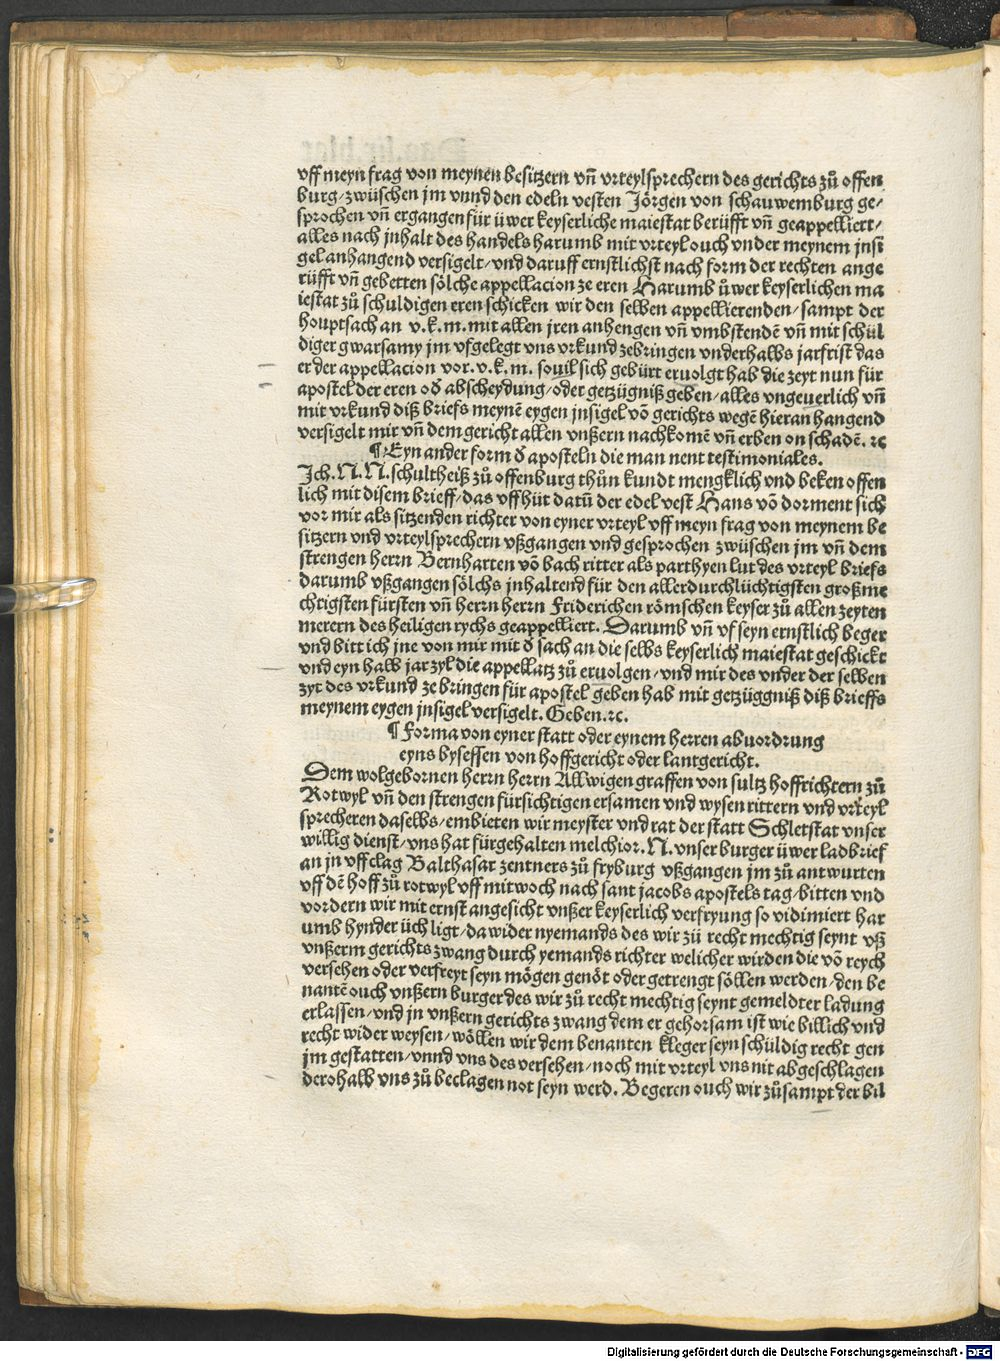 vff meyn frag von meynen besitzern vñ vrteylsprechern des gerichts zů offen
burg/zwüschen jm vnnd den edeln vesten Jörgen von schauwemburg ge-
sprochen vñ ergangen für üwer keyserliche maiestat berüfft vñ geappelliert/
alles nach jnhalt des handels harumb mit vrteyl ouch vnder meynem jnsi
gel anhangend versigelt/vnd daruff ernstlichst nach form der rechten ange
rüfft vñ gebetten sölche appellacion ze eren Harumb ůwer keyserlichen ma
iestat zů schuldigen eren schicken wir den selben appellierenden/sampt der
houptsach an v.k.m.mit allen jren anhengen vñ vmbstendē vñ mit schül
diger gwarsamy jm vfgelegt vns vrkund zebringen vnderhalbs jarfrist das
er der appellacion vor.v.k.m. souil sich gebürt eruolgt hab die zeyt nun für
apostel der eren oď abscheydung/oder getzügniß geben/alles vngeuerlich vñ
mit vrkund diß briefs meynē eygen jnsigel vō gerichts wegē hieran hangend
versigelt mir vñ dem gericht allen vnßern nachkomē vñ erben on schadē. ⁊c
¶Eyn ander form ď aposteln die man nent testimoniales.
Jch.N.N.schultheiß zů offenburg thůn kundt mengklich vnd beken offen
lich mit disem brieff/das vff hüt datū der edel vest Hans vō dorment sich
vor mir als sitzenden richter von eyner vrteyl vff meyn frag von meynem be
sitzern vnd vrteylsprechern vßgangen vnd gesprochen zwüschen jm vñ dem
strengen herrn Bernharten vō bach ritter als parthyen lut des vrteyl briefs
darumb vßgangen sölchs jnhaltend für den allerdurchlüchtigsten großme
chtigsten fürsten vñ herrn herrn Friderichen römschen keyser zů allen zeyten
merern des heiligen rychs geappelliert. Darumb vñ vf seyn ernstlich beger
vnd bitt ich jne von mir mit ď sach an die selbs keyserlich maiestat geschickt
vnd eyn halb jar zyl die appellatz zů eruolgen/vnd mir des vnder der selben
zyt des vrkund ze bringen für apostel geben hab mit getzüggniß diß brieffs
meynem eygen jnsigel versigelt. Geben.⁊c.
¶Forma von eyner statt oder eynem herren abuordrung
eyns bysessen von hoffgericht oder lantgericht.
Dem wolgebornen herrn herrn Allwigen graffen von sultz hoffrichtern zů
Rotwyl vñ den strengen fürsichtigen ersamen vnd wysen rittern vnd vrteyl
sprecheren daselbs/embieten wir meyster vnd rat der statt Schletstat vnser
willig dienst/vns hat fürgehalten melchior.N.vnser burger üwer ladbrief
an jn vff clag Balthasar zentners zů fryburg vßgangen jm zů antwurten
vff dē hoff zů rotwyl vff mitwoch nach sant jacobs apostels tag/bitten vnd
vordern wir mit ernst angesicht vnßer keyserlich verfryung so vidimiert har
umb hynder üch ligt/da wider nyemands des wir zů recht mechtig seynt vß
vnßerm gerichts zwang durch yemands richter welicher wirden die vō reych
versehen oder verfreyt seyn mögen genöt oder getrengt söllen werden/den be
nantē ouch vnßern burger des wir zů recht mechtig seynt gemeldter ladung
erlassen/vnd jn vnßern gerichts zwang dem er gehorsam ist wie billich vnd
recht wider weysen/wöllen wir dem benanten kleger seyn schüldig recht gen
jm gestatten/vnnd vns des versehen/noch mit vrteyl vns nit abgeschlagen
derohalb vns zů beclagen not seyn werd. Begeren ouch wir zůsampt der bil
Digitalisierung gefördert durch die Deutsche Forschungsgemeinschaft - DFG